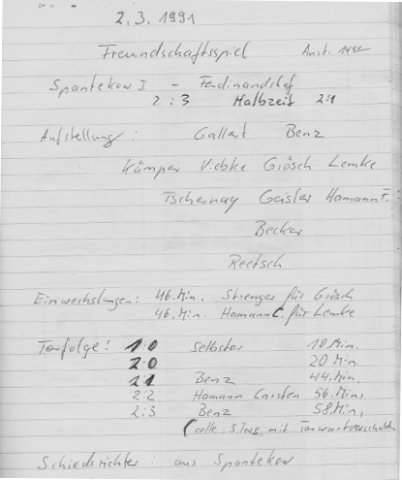 2.3.1991
Freundschaftsspiel Anst. 14⁰⁰
Spantekow I - Ferdinandshof
2:3 Halbzeit 2:1
Aufstellung: Gallert Benz
Kämper Viebke Grösch Lemke
Tschernay Geisler Hamann T.
Becker
Reetsch
Einwechslungen: 46. Min. Strenger für Grösch
46. Min. Hamann C. für Lemke
Torfolge: 1:0 Selbstor 10. Min.
2:0 20 Min.
2:1 Benz 44. Min.
2:2 Hamann Carsten 56. Min.
2:3 Benz 58. Min.
(alle 3 Tore mit Torwartverschulden
Schiedsrichter: aus Spantekow